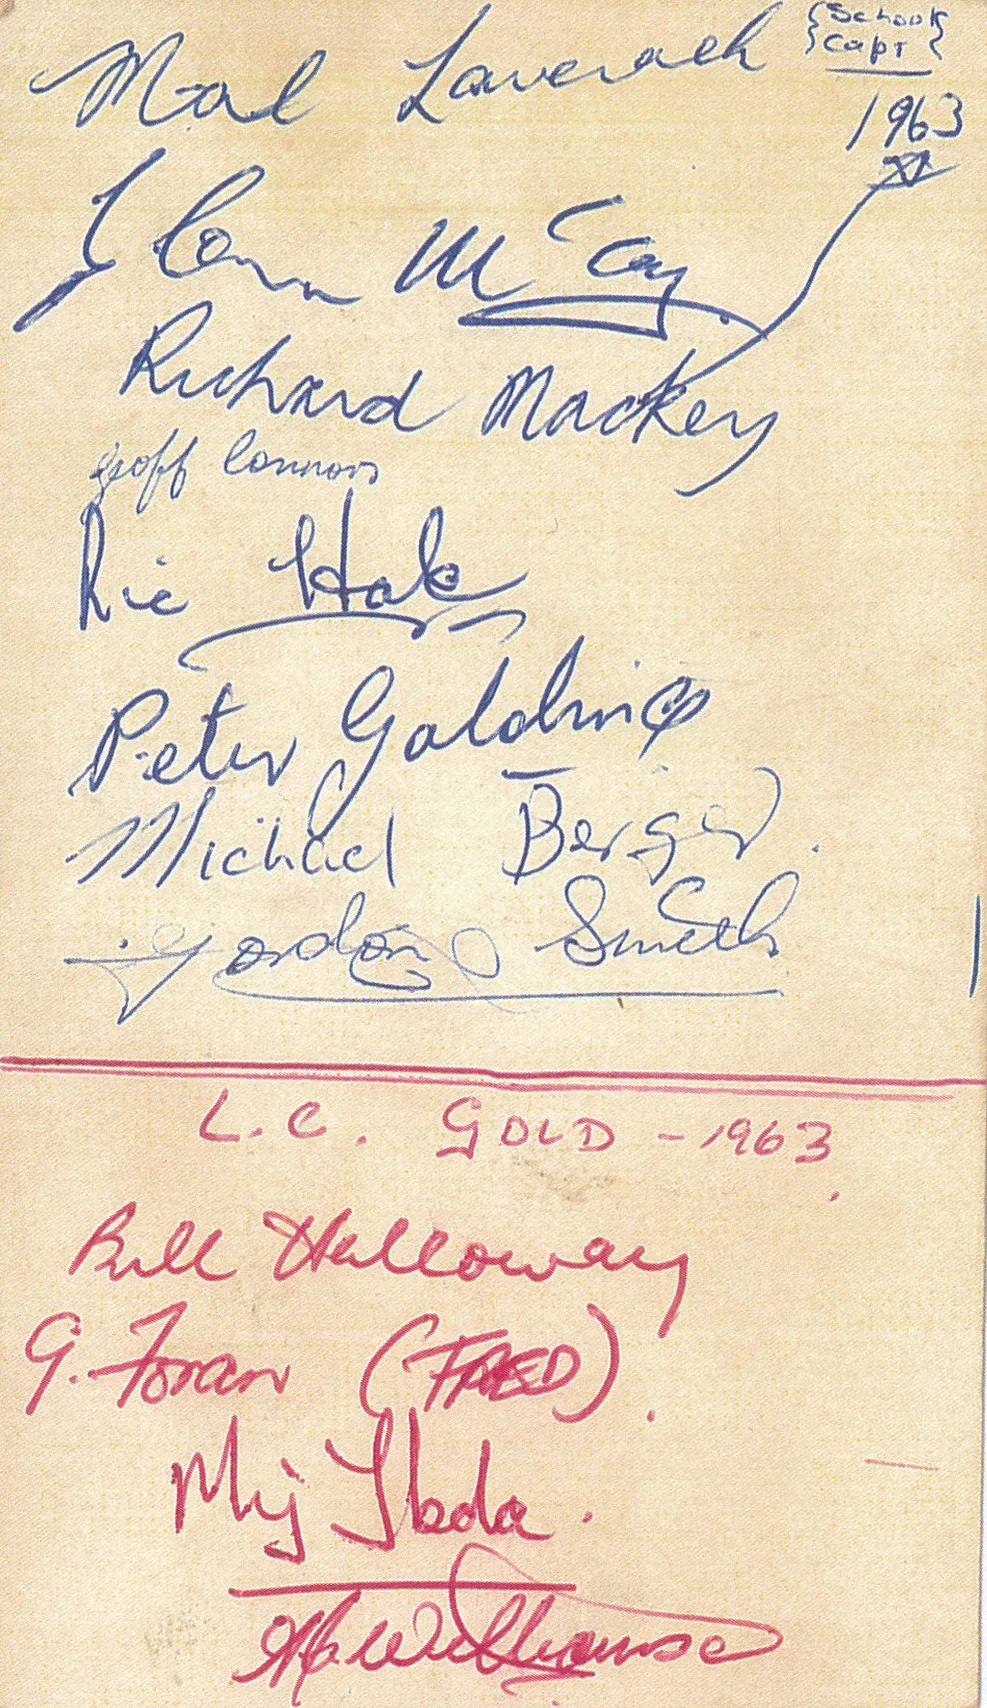 Mal Laverack {School
Capt}
1963
Glenn McCay
Richard Mackey
Geoff Connors
Ric
Peter Golding
Michael Berger.
Gordon Smith
L.C. GOLD - 1963
Bill Holloway
G. Foran (FRED).
Mij